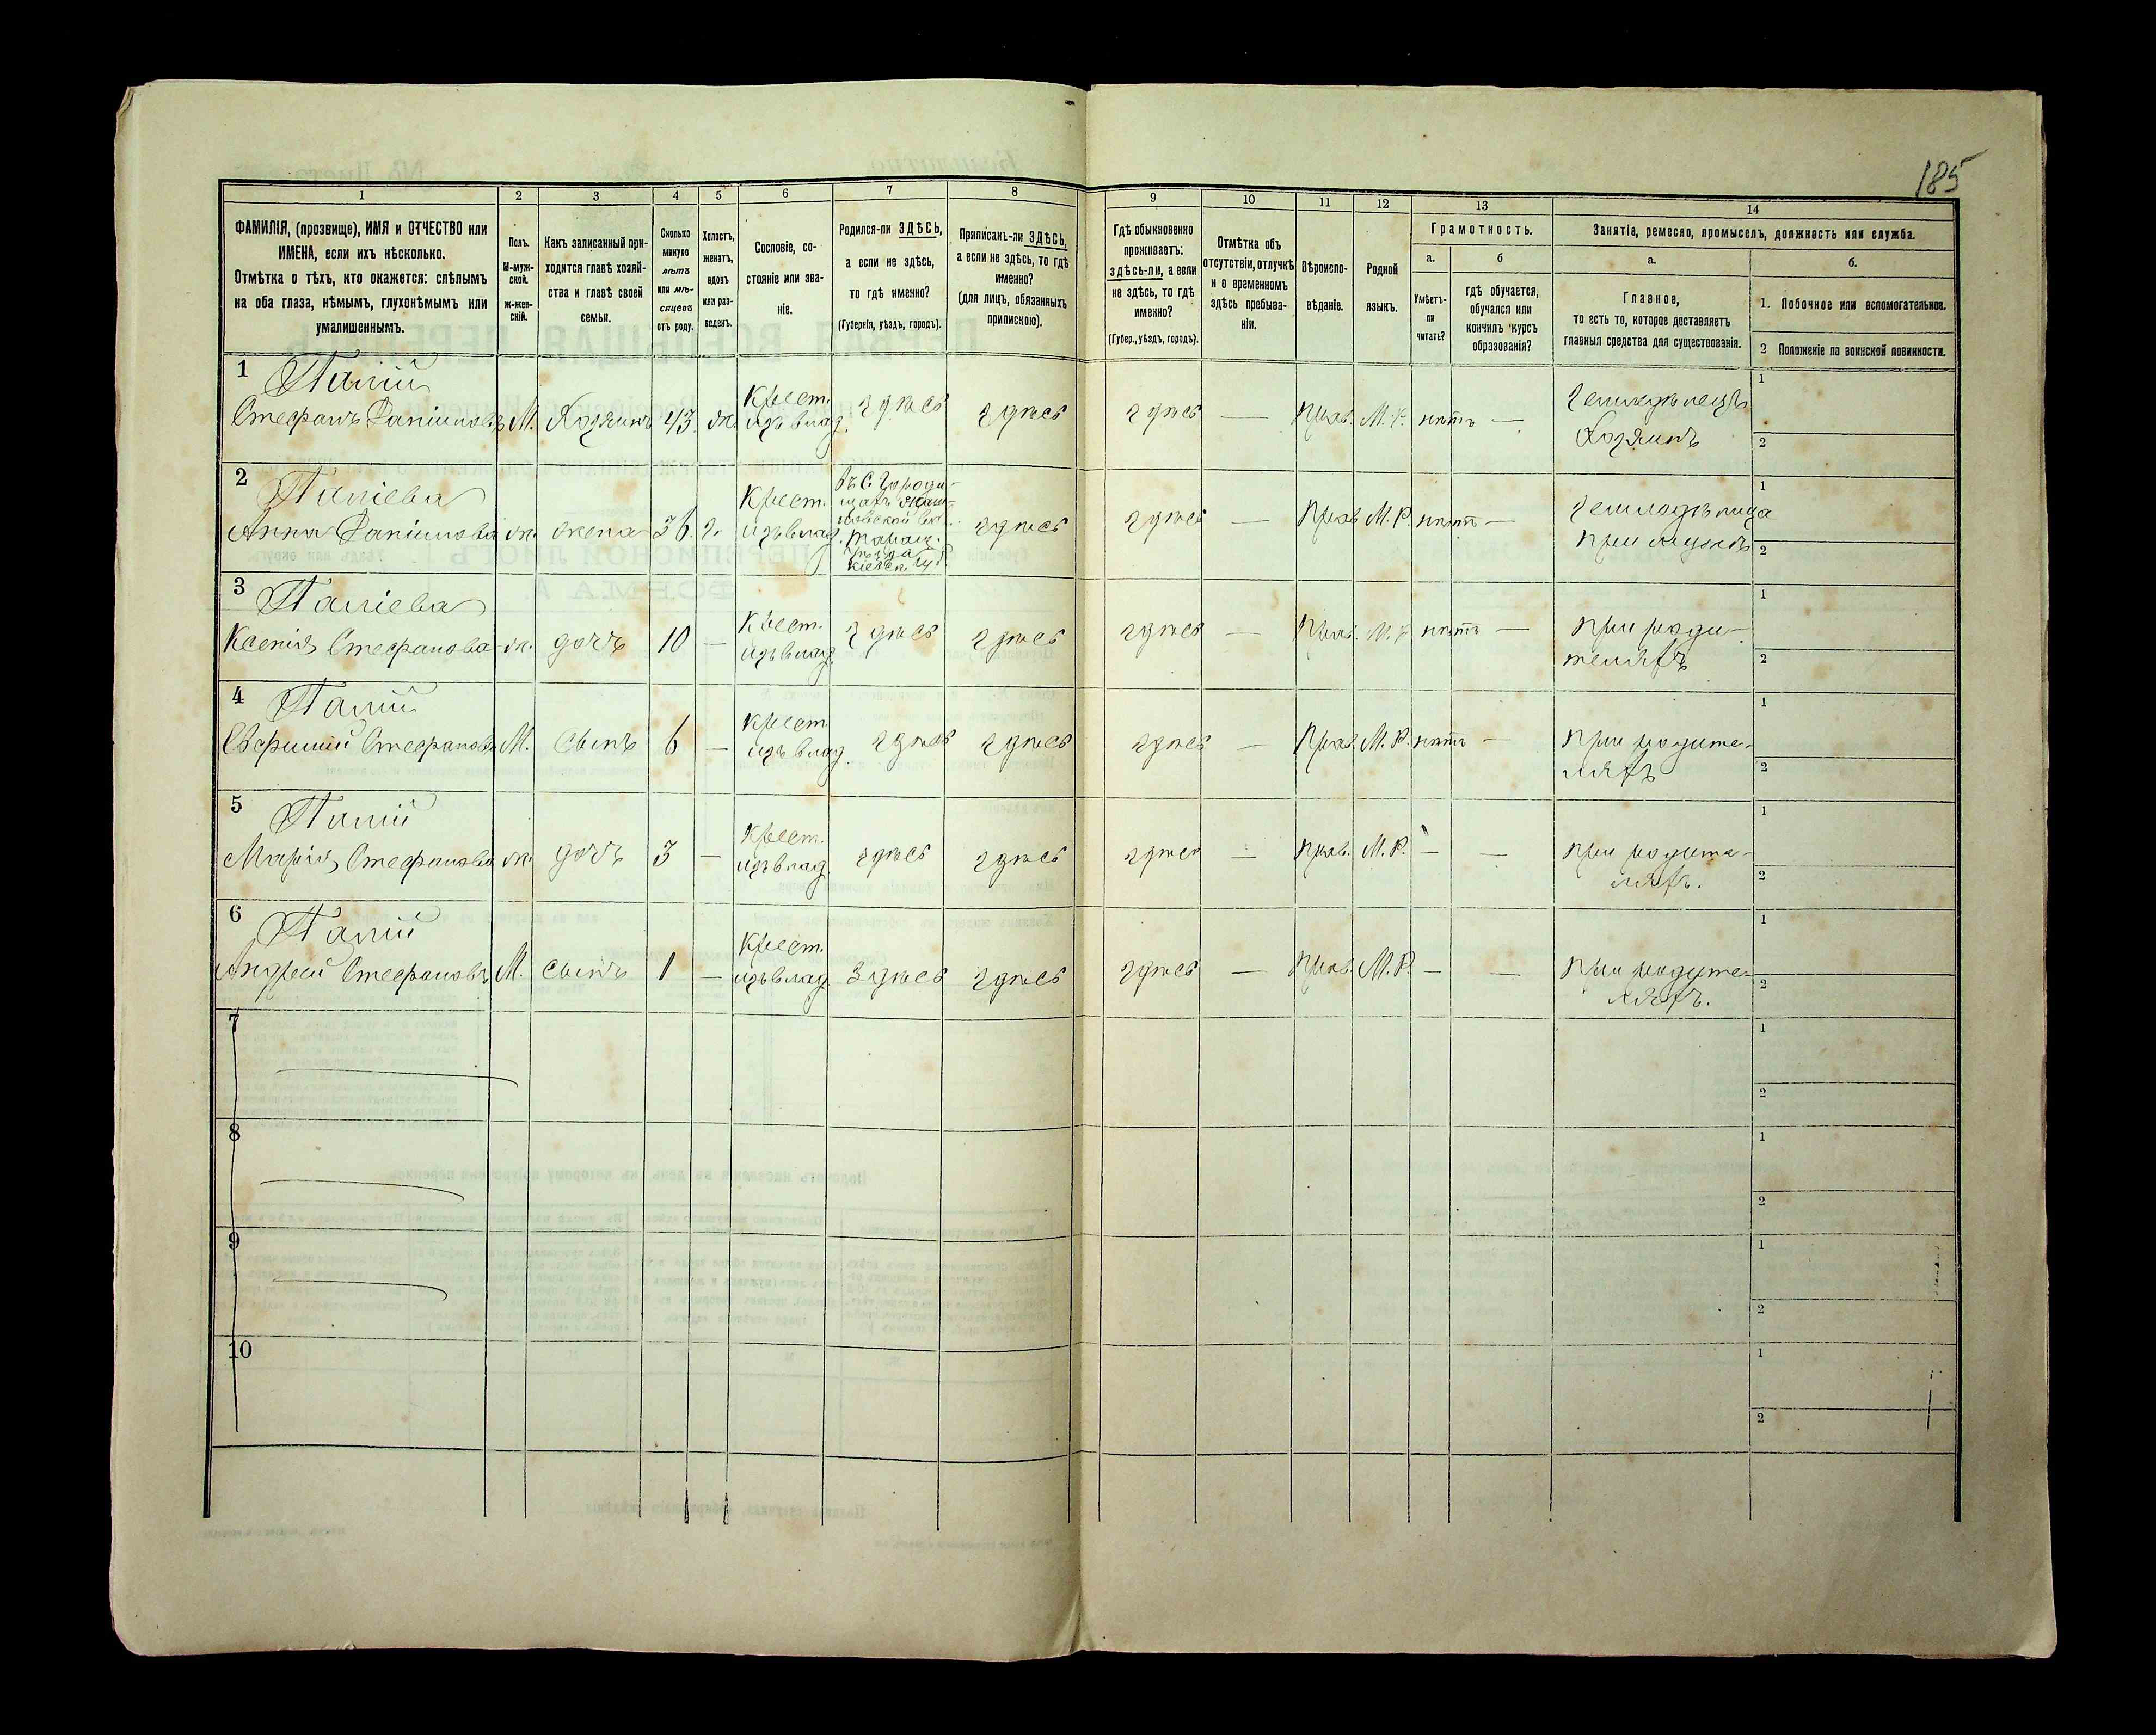 185
1
2
3
4
5
6
7
8
9
10
11
12
13
14
ФАМИЛІЯ, (прозвище), ИМЯ и ОТЧЕСТВО или
ИМЕНА, если ихъ нѣсколько.
Отмѣтка о тѣхъ, кто окажется: слѣпымъ
на оба глаза, нѣмымъ, глухонѣмымъ или
умалишеннымъ.
Полъ.
М-муж-
ской.
ж-жен-
скій.
Какъ записанный при-
ходится главѣ хозяй-
ства и главѣ своей
семьи.
Сколько
минуло
лѣтъ
или мѣ-
сяцевъ
отъ роду.
Холостъ,
женатъ,
вдовъ
или раз-
веденъ.
Сословіе, со-
стояніе или зва-
ніе.
Родился-ли ЗДѢСЬ,
а если не здѣсь,
то гдѣ именно?
(Губернія, уѣздъ, городъ).
Приписанъ-ли ЗДѢСЬ,
а если не здѣсь, то гдѣ
именно?
(для лицъ, обязанныхъ
припискою).
Гдѣ обыкновенно
проживаетъ:
здѣсь-ли, а если
не здѣсь, то гдѣ
именно?
(Губер., уѣздъ, городъ).
Отмѣтка объ
отсутствіи, отлучкѣ
и о временномъ
здѣсь пребыва-
ніи.
Вѣроиспо-
вѣданіе.
Родной
языкъ.
Грамотность.
а.
Умѣетъ-
ли
читать?
б
гдѣ обучается,
обучался или
кончилъ курсъ
образованія?
Занятіе, ремесло, промыселъ, должность или служба.
а.
Главное,
то есть то, которое доставляетъ
главныя средства для существованія.
б.
1. Побочное или вспомогательное.
2 Положеніе по воинской повинности.
1 Палій
Стефанъ Даніиловъ М. Хозяинъ 43. ж. Крест. изъ влад. здѣсь здѣсь здѣсь — Прав. М. Р. нѣтъ — Земледѣлецъ
Хозяинъ
1
2
2 Паліева
Анна Даніилова ж. жена 36. з. Крест. изъ влад. въ С. Городи-
здѣсь здѣсь — Прав. М. Р. нѣтъ — Земледѣлица
при мужѣ
1
2
3 Паліева
Ксенія Стефанова ж. дочь 10 — Крест. изъ влад. здѣсь здѣсь здѣсь — Прав. М. Р. нѣтъ — при роди-
теляхъ
1
2
4 Палій
Евфимій Стефановъ М. сынъ 6 — Крест. изъ влад. здѣсь здѣсь здѣсь — Прав. М. Р. нѣтъ — при родите-
ляхъ
1
2
5 Палій
Марія Стефанова ж. дочь 3 — Крест. изъ влад. здѣсь здѣсь здѣсь — Прав. М. Р. — — при родите-
ляхъ.
1
2
6 Палій
Андрей Стефановъ М. сынъ 1 — Крест. изъ влад. Здѣсь здѣсь здѣсь — Прав. М. Р. — — при родите-
ляхъ.
1
2
7
1
2
8
1
2
9
1
2
10
1
2